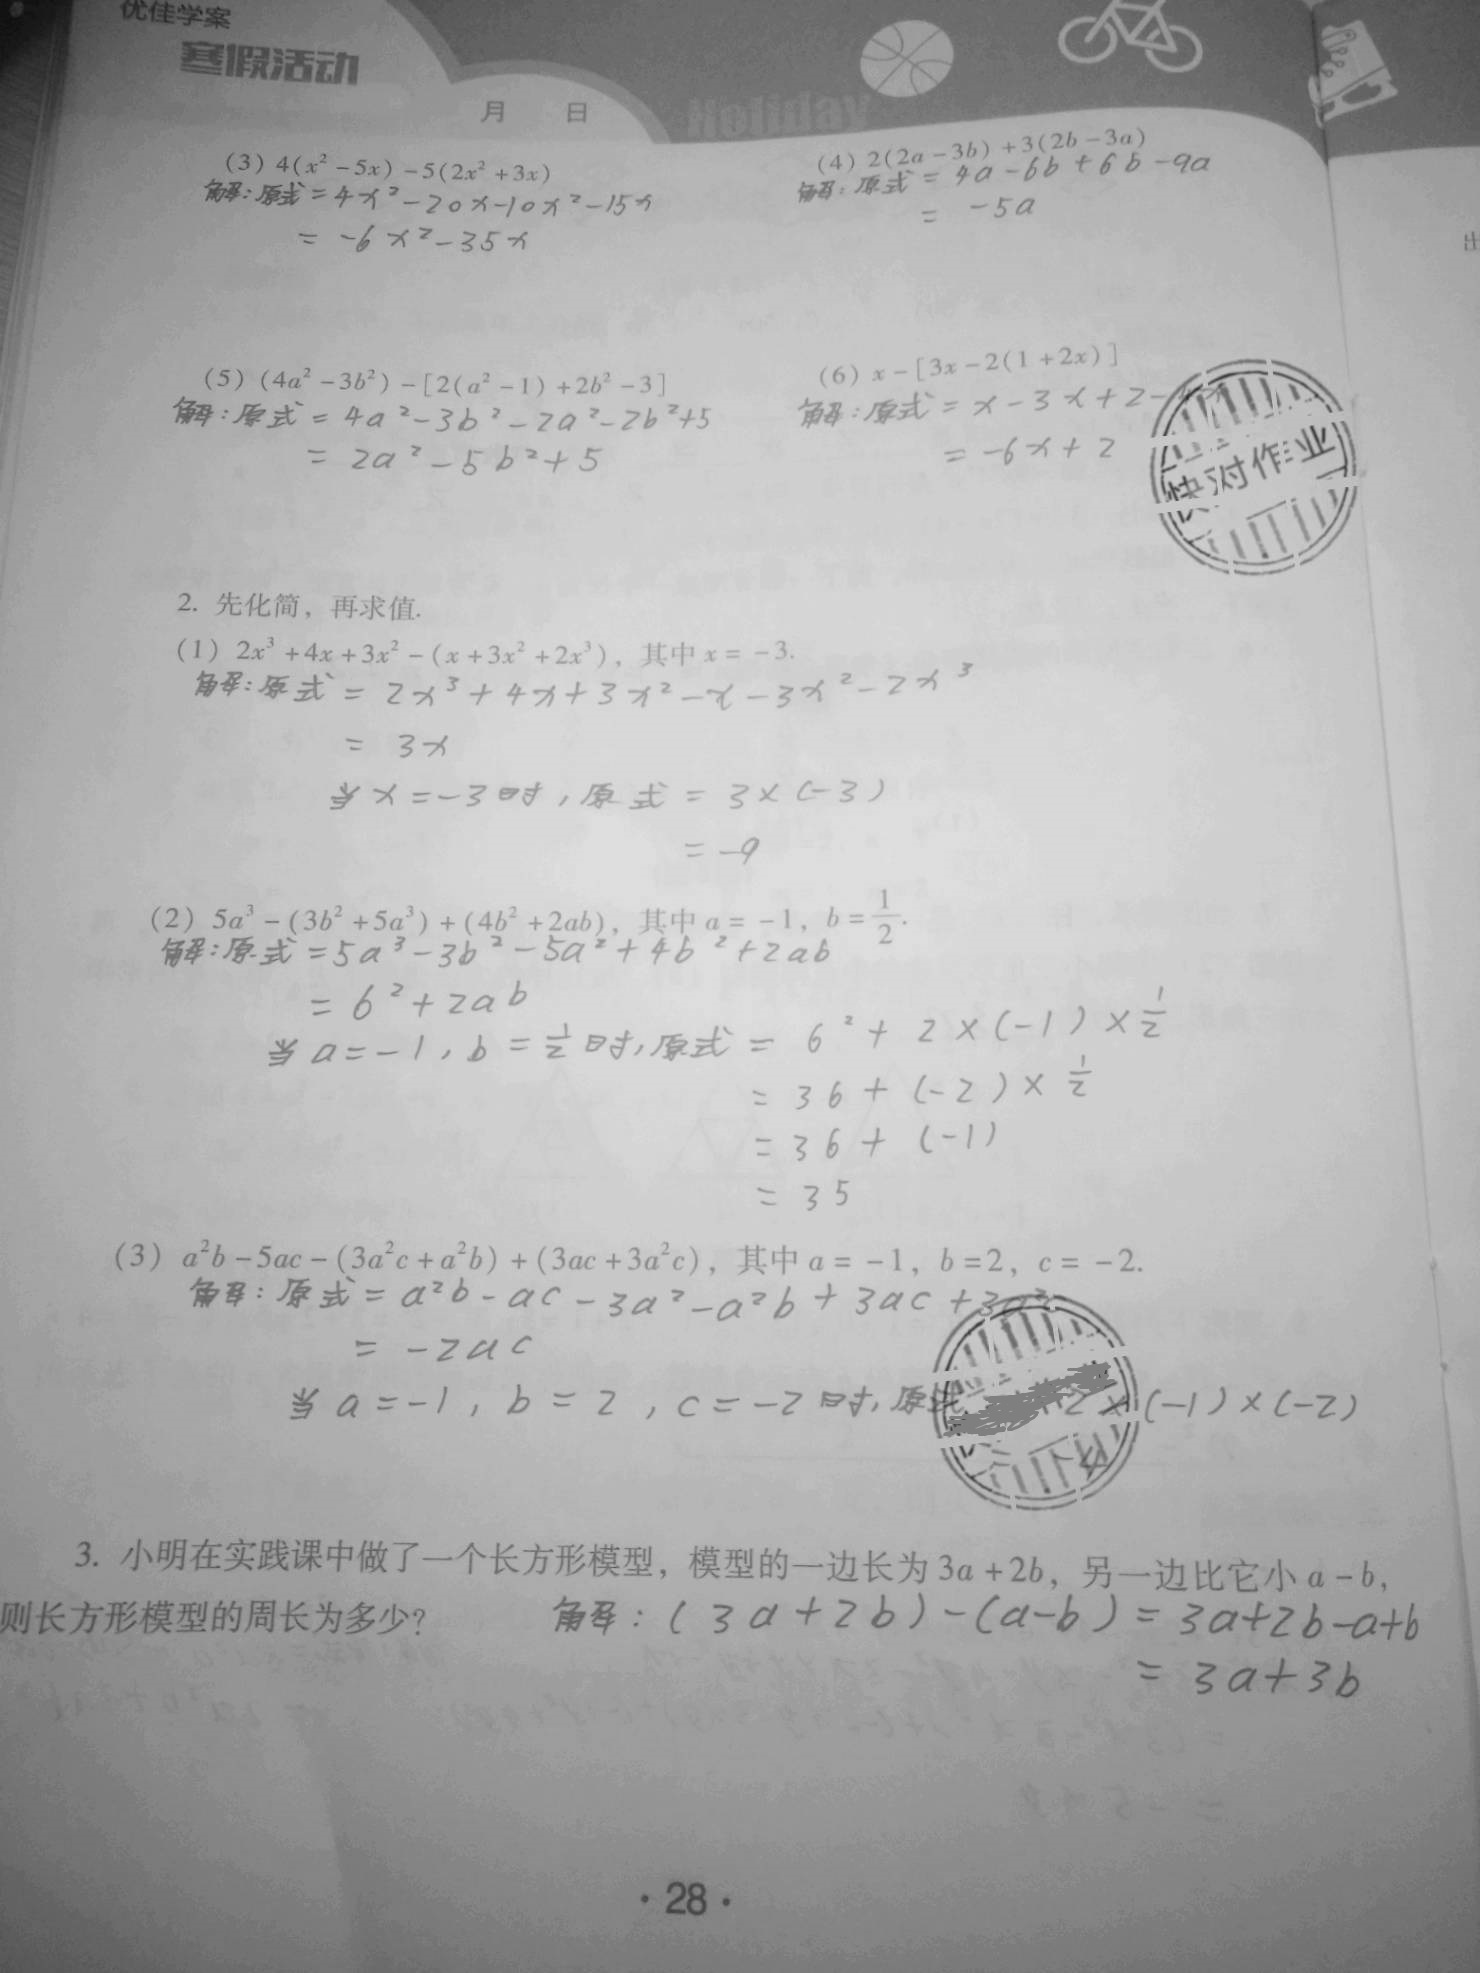 优佳学案
寒假活动
月 日
Holiday
(3) 4(x² -5x) -5(2x² +3x)
解:原式=4x²-20x-10x²-15x
= -6x²-35x
(4) 2(2a-3b)+3(2b-3a)
解:原式= 4a-6b+6b-9a
= -5a
出
(5) (4a² -3b²) -[2(a² -1) +2b² -3]
解:原式=4a²-3b²-2a²-2b²+5
= 2a²-5b²+5
(6) x-[3x-2(1+2x)]
解:原式=x-3x+2-4x
=-6x+2
快对作业
2. 先化简，再求值.
(1) 2x³ +4x+3x² -(x+3x² +2x³)，其中x= -3.
解:原式= 2x³+4x+3x²-x-3x²-2x³
= 3x
当x=-3时,原式= 3×(-3)
=-9
(2) 5a³ -(3b² +5a³) +(4b² +2ab)，其中a= -1，b=1/2.
解:原式=5a³-3b²-5a²+4b²+2ab
= 6²+2ab
当a=-1,b=1/2时,原式= 6²+2×(-1)×1/2
= 36+(-2)×1/2
= 36+(-1)
= 35
(3) a²b-5ac-(3a²c+a²b)+(3ac+3a²c)，其中a= -1，b=2，c= -2.
解:原式=a²b-ac-3a²-a²b+3ac+3a²
= -2ac
当a=-1,b=2,c=-2时,原式 2×(-1)×(-2)
-4
3. 小明在实践课中做了一个长方形模型，模型的一边长为3a+2b，另一边比它小a-b，
则长方形模型的周长为多少?
解:(3a+2b)-(a-b)=3a+2b-a+b
= 3a+3b
·28·